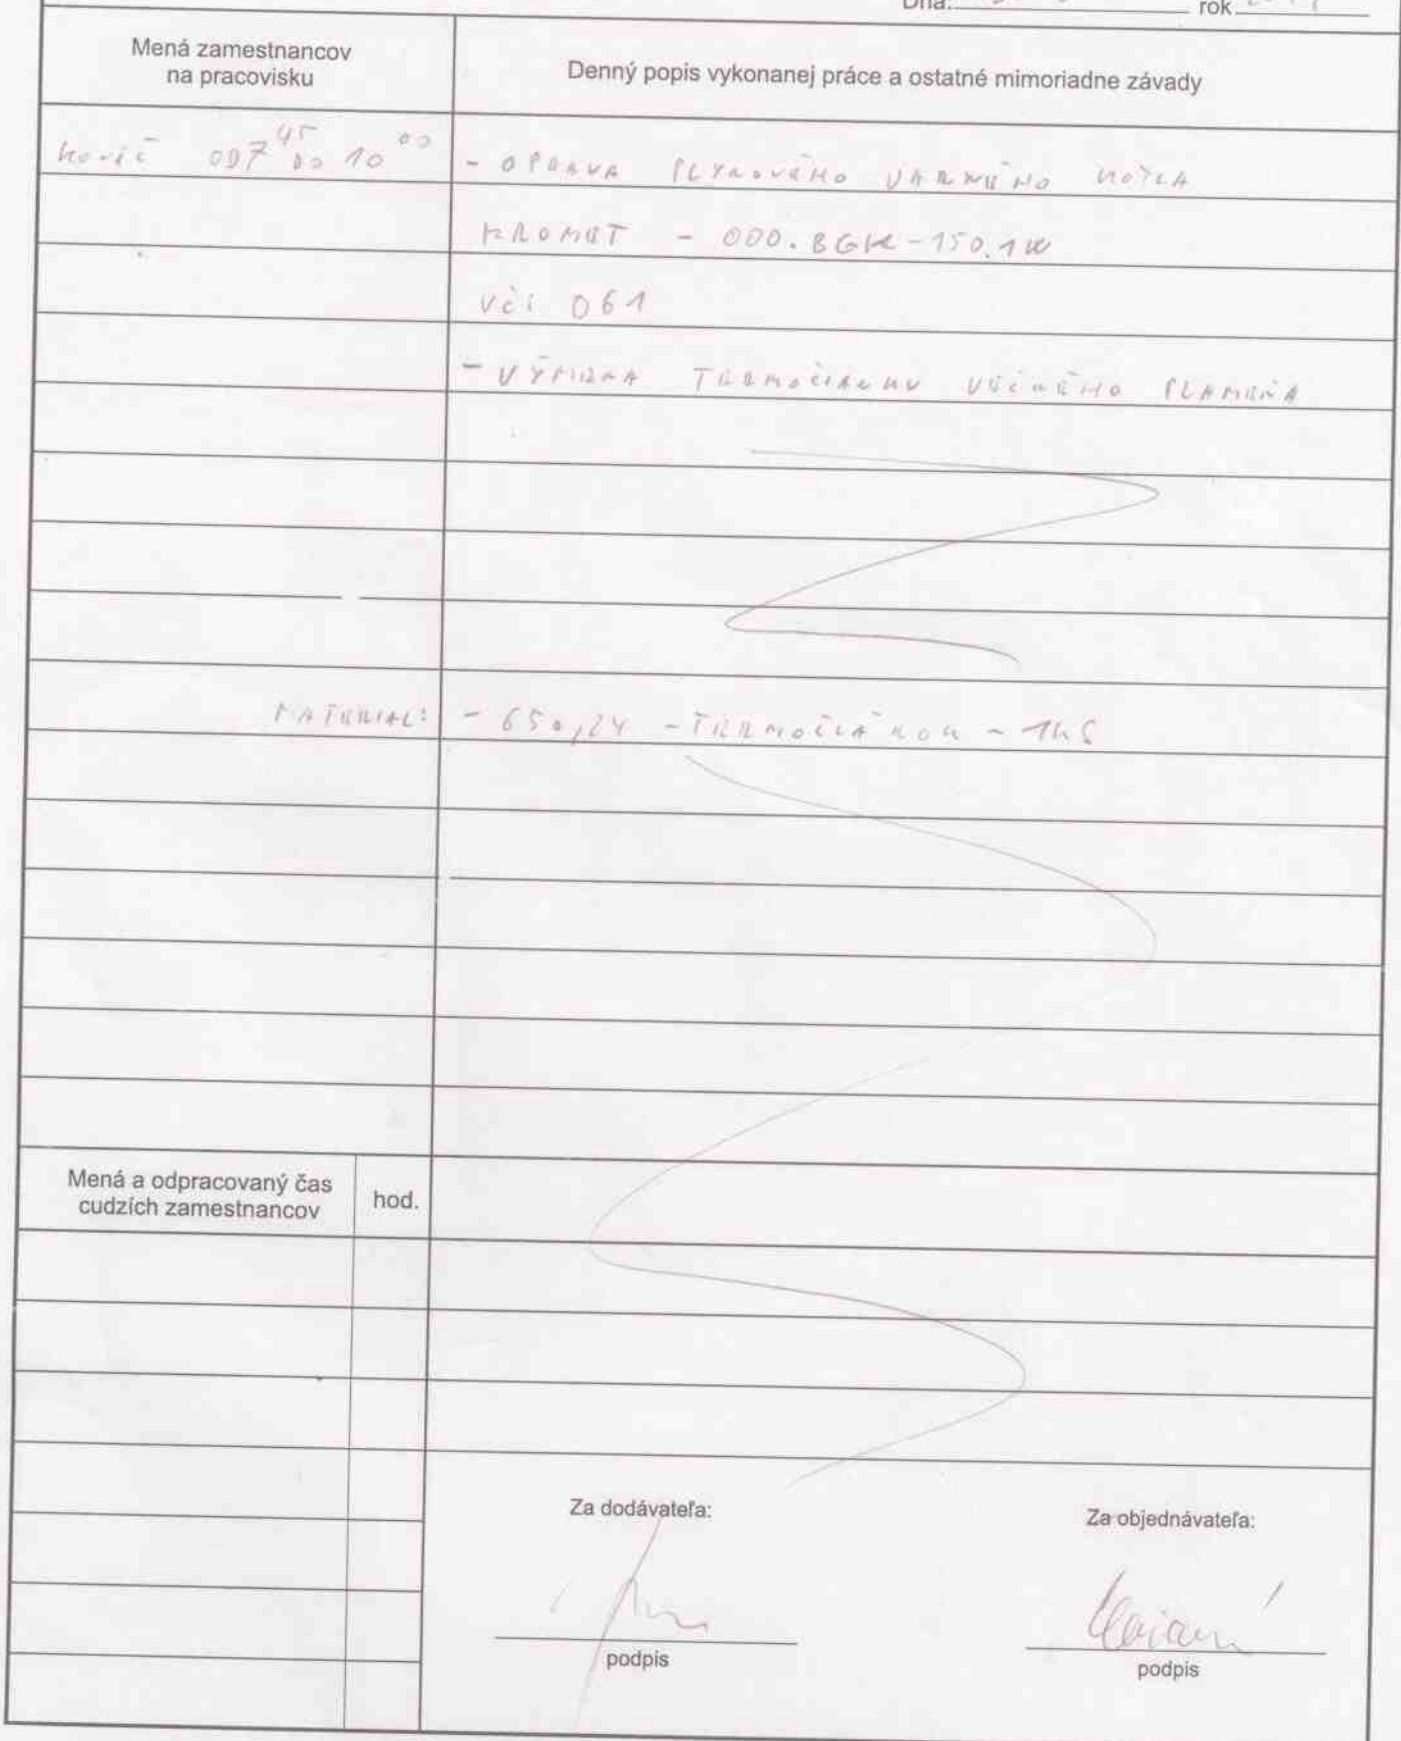 Dňa: rok
Mená zamestnancov
na pracovisku
Denný popis vykonanej práce a ostatné mimoriadne závady
OD 7 45 DO 10 00
- OPRAVA PLYNOVÉHO VARNÉHO KOTLA
KROMET - 000.BGK-150.1W
061
- VÝMENA TERMOČLÁNKU VEČNÉHO PLAMEŇA
MATERIAL: - 650,24 - TERMOČLÁNOK - 1KS
Mená a odpracovaný čas
cudzích zamestnancov
hod.
Za dodávateľa:
Za objednávateľa:
podpis
podpis